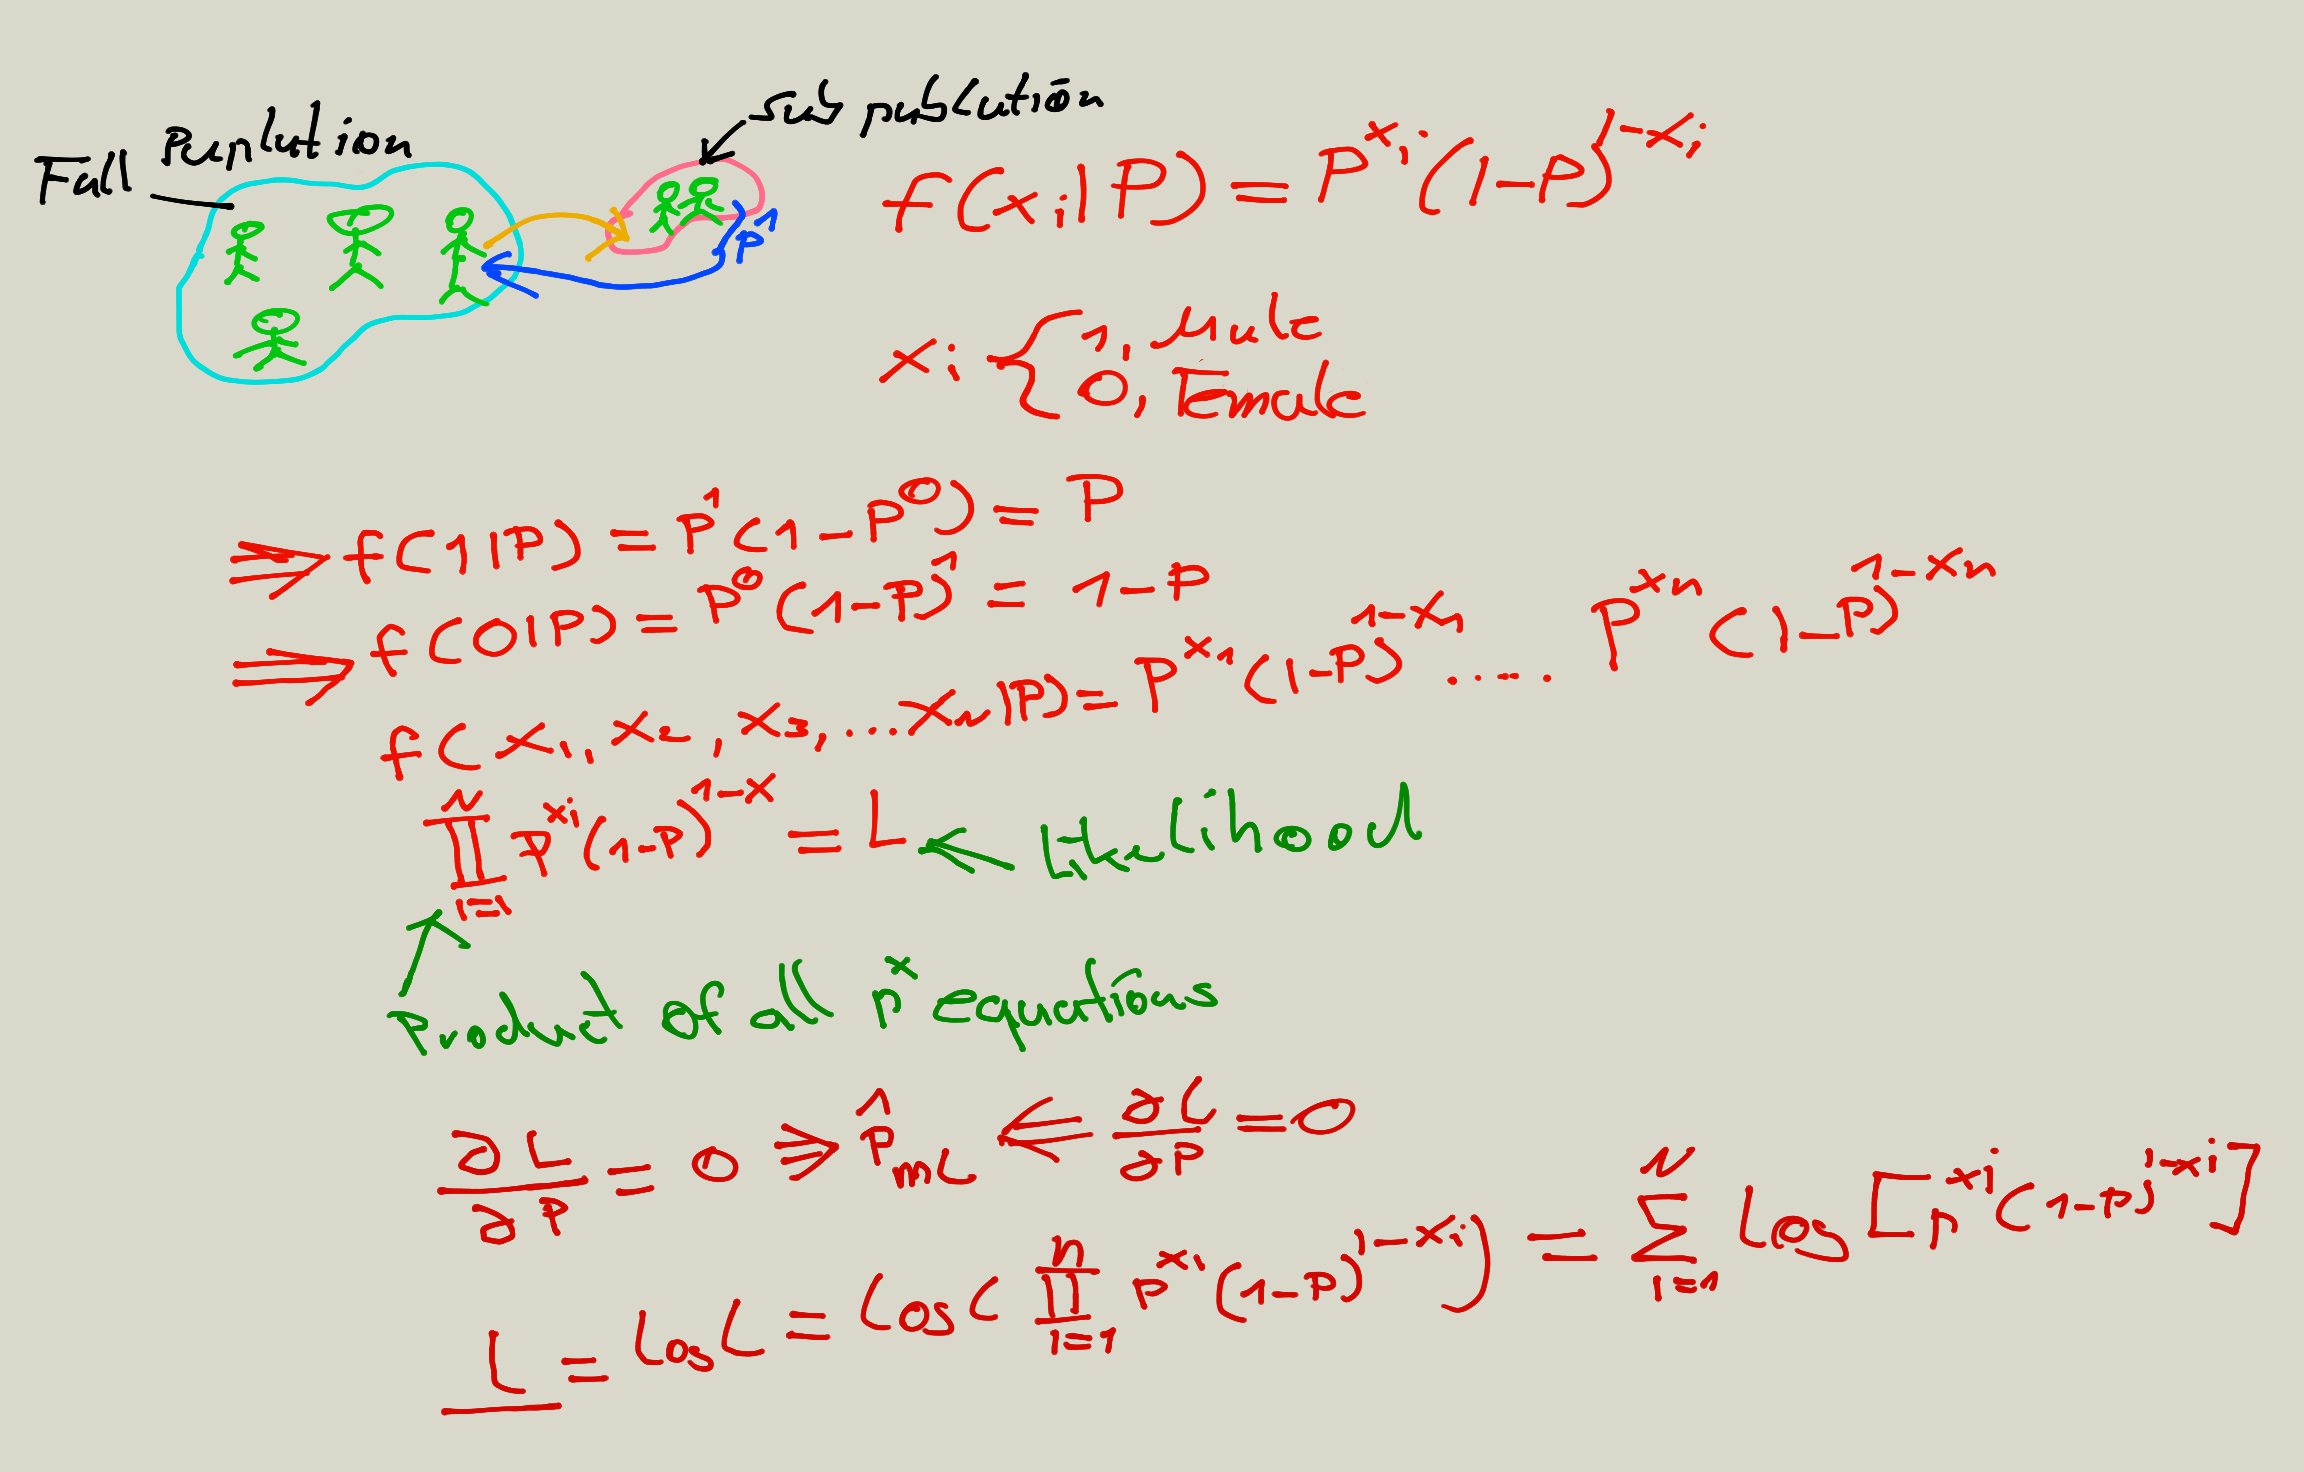 sub publution
Full Puplution
p^1
f(x_i|P) = P^{x_i}(1-P)^{1-x_i}
x_i { 1, Male
0, Female
⇒ f(1|P) = P^1(1-P^0) = P
⇒ f(0|P) = P^0(1-P)^1 = 1-P
f(x_1, x_2, x_3, ...x_n|P) = P^{x_1}(1-P)^{1-x_1} ..... P^{x_n}(1-P)^{1-x_n}
∏_{i=1}^{N} P^{x_i}(1-P)^{1-x} = L ← Likelihood
Product of all p^x equations
∂L/∂P = 0 ⇒ p̂_{mL} ⇐ ∂l/∂P = 0
l = log L = log( ∏_{i=1}^{n} P^{x_i}(1-P)^{1-x_i} ) = ∑_{i=1}^{N} log[P^{x_i}(1-P)^{1-x_i}]